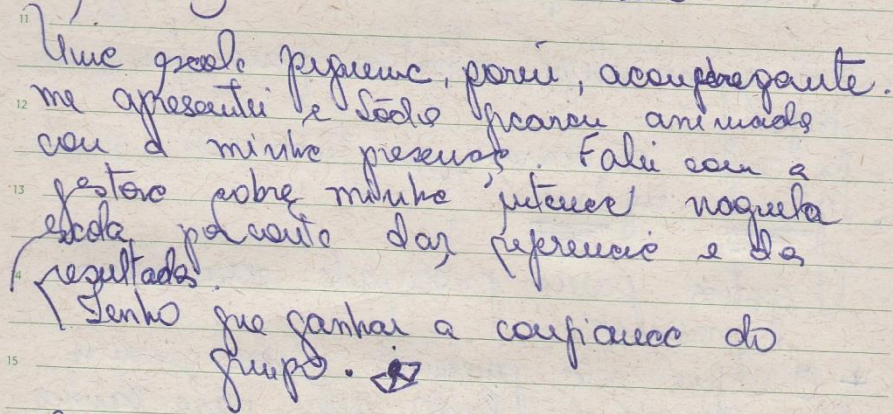 11
Uma escola pequena, porém, aconchegante.
12 me apresentei e todos ficaram animados
com a minha presença. Falei com a
13 gestora sobre minha intenção naquela
escola, por conta das referencia e dos
4 resultados.
Tenho que ganhar a confiança do
15 grupo.